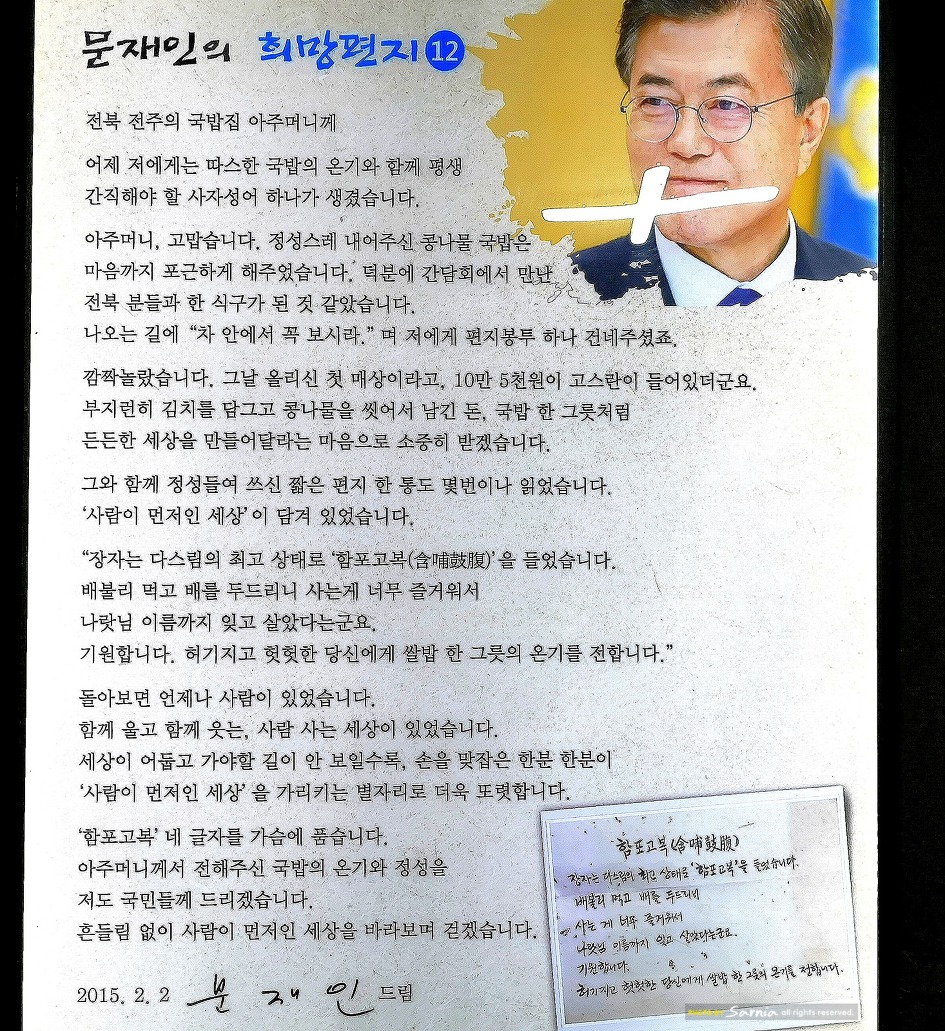 문재인의 희망편지 12
전북 전주의 국밥집 아주머니께
어제 저에게는 따스한 국밥의 온기와 함께 평생
간직해야 할 사자성어 하나가 생겼습니다.
아주머니, 고맙습니다. 정성스레 내어주신 콩나물 국밥은
마음까지 포근하게 해주었습니다. 덕분에 간담회에서 만난
전북 분들과 한 식구가 된 것 같았습니다.
나오는 길에 “차 안에서 꼭 보시라.” 며 저에게 편지봉투 하나 건네주셨죠.
깜짝놀랐습니다. 그날 올리신 첫 매상이라고, 10만 5천원이 고스란이 들어있더군요.
부지런히 김치를 담그고 콩나물을 씻어서 남긴 돈, 국밥 한 그릇처럼
든든한 세상을 만들어달라는 마음으로 소중히 받겠습니다.
그와 함께 정성들여 쓰신 짧은 편지 한 통도 몇번이나 읽었습니다.
‘사람이 먼저인 세상’이 담겨 있었습니다.
“장자는 다스림의 최고 상태로 ‘함포고복(含哺鼓腹)’을 들었습니다.
배불리 먹고 배를 두드리니 사는게 너무 즐거워서
나랏님 이름까지 잊고 살았다는군요.
기원합니다. 허기지고 헛헛한 당신에게 쌀밥 한 그릇의 온기를 전합니다.”
돌아보면 언제나 사람이 있었습니다.
함께 울고 함께 웃는, 사람 사는 세상이 있었습니다.
세상이 어둡고 가야할 길이 안 보일수록, 손을 맞잡은 한분 한분이
‘사람이 먼저인 세상’ 을 가리키는 별자리로 더욱 또렷합니다.
‘함포고복’ 네 글자를 가슴에 품습니다.
아주머니께서 전해주신 국밥의 온기와 정성을
저도 국민들께 드리겠습니다.
흔들림 없이 사람이 먼저인 세상을 바라보며 걷겠습니다.
2015. 2. 2 문재인 드림
함포고복(含哺鼓腹)
장자는 다스림의 최고 상태로 '함포고복'을 들었습니다.
배불리 먹고 배를 두드리니
사는 게 너무 즐거워서
나랏님 이름까지 잊고 살았다는군요.
기원합니다.
허기지고 헛헛한 당신에게 쌀밥 한 그릇의 온기를 전합니다.
PHOTO BY Sarnia all rights reserved.